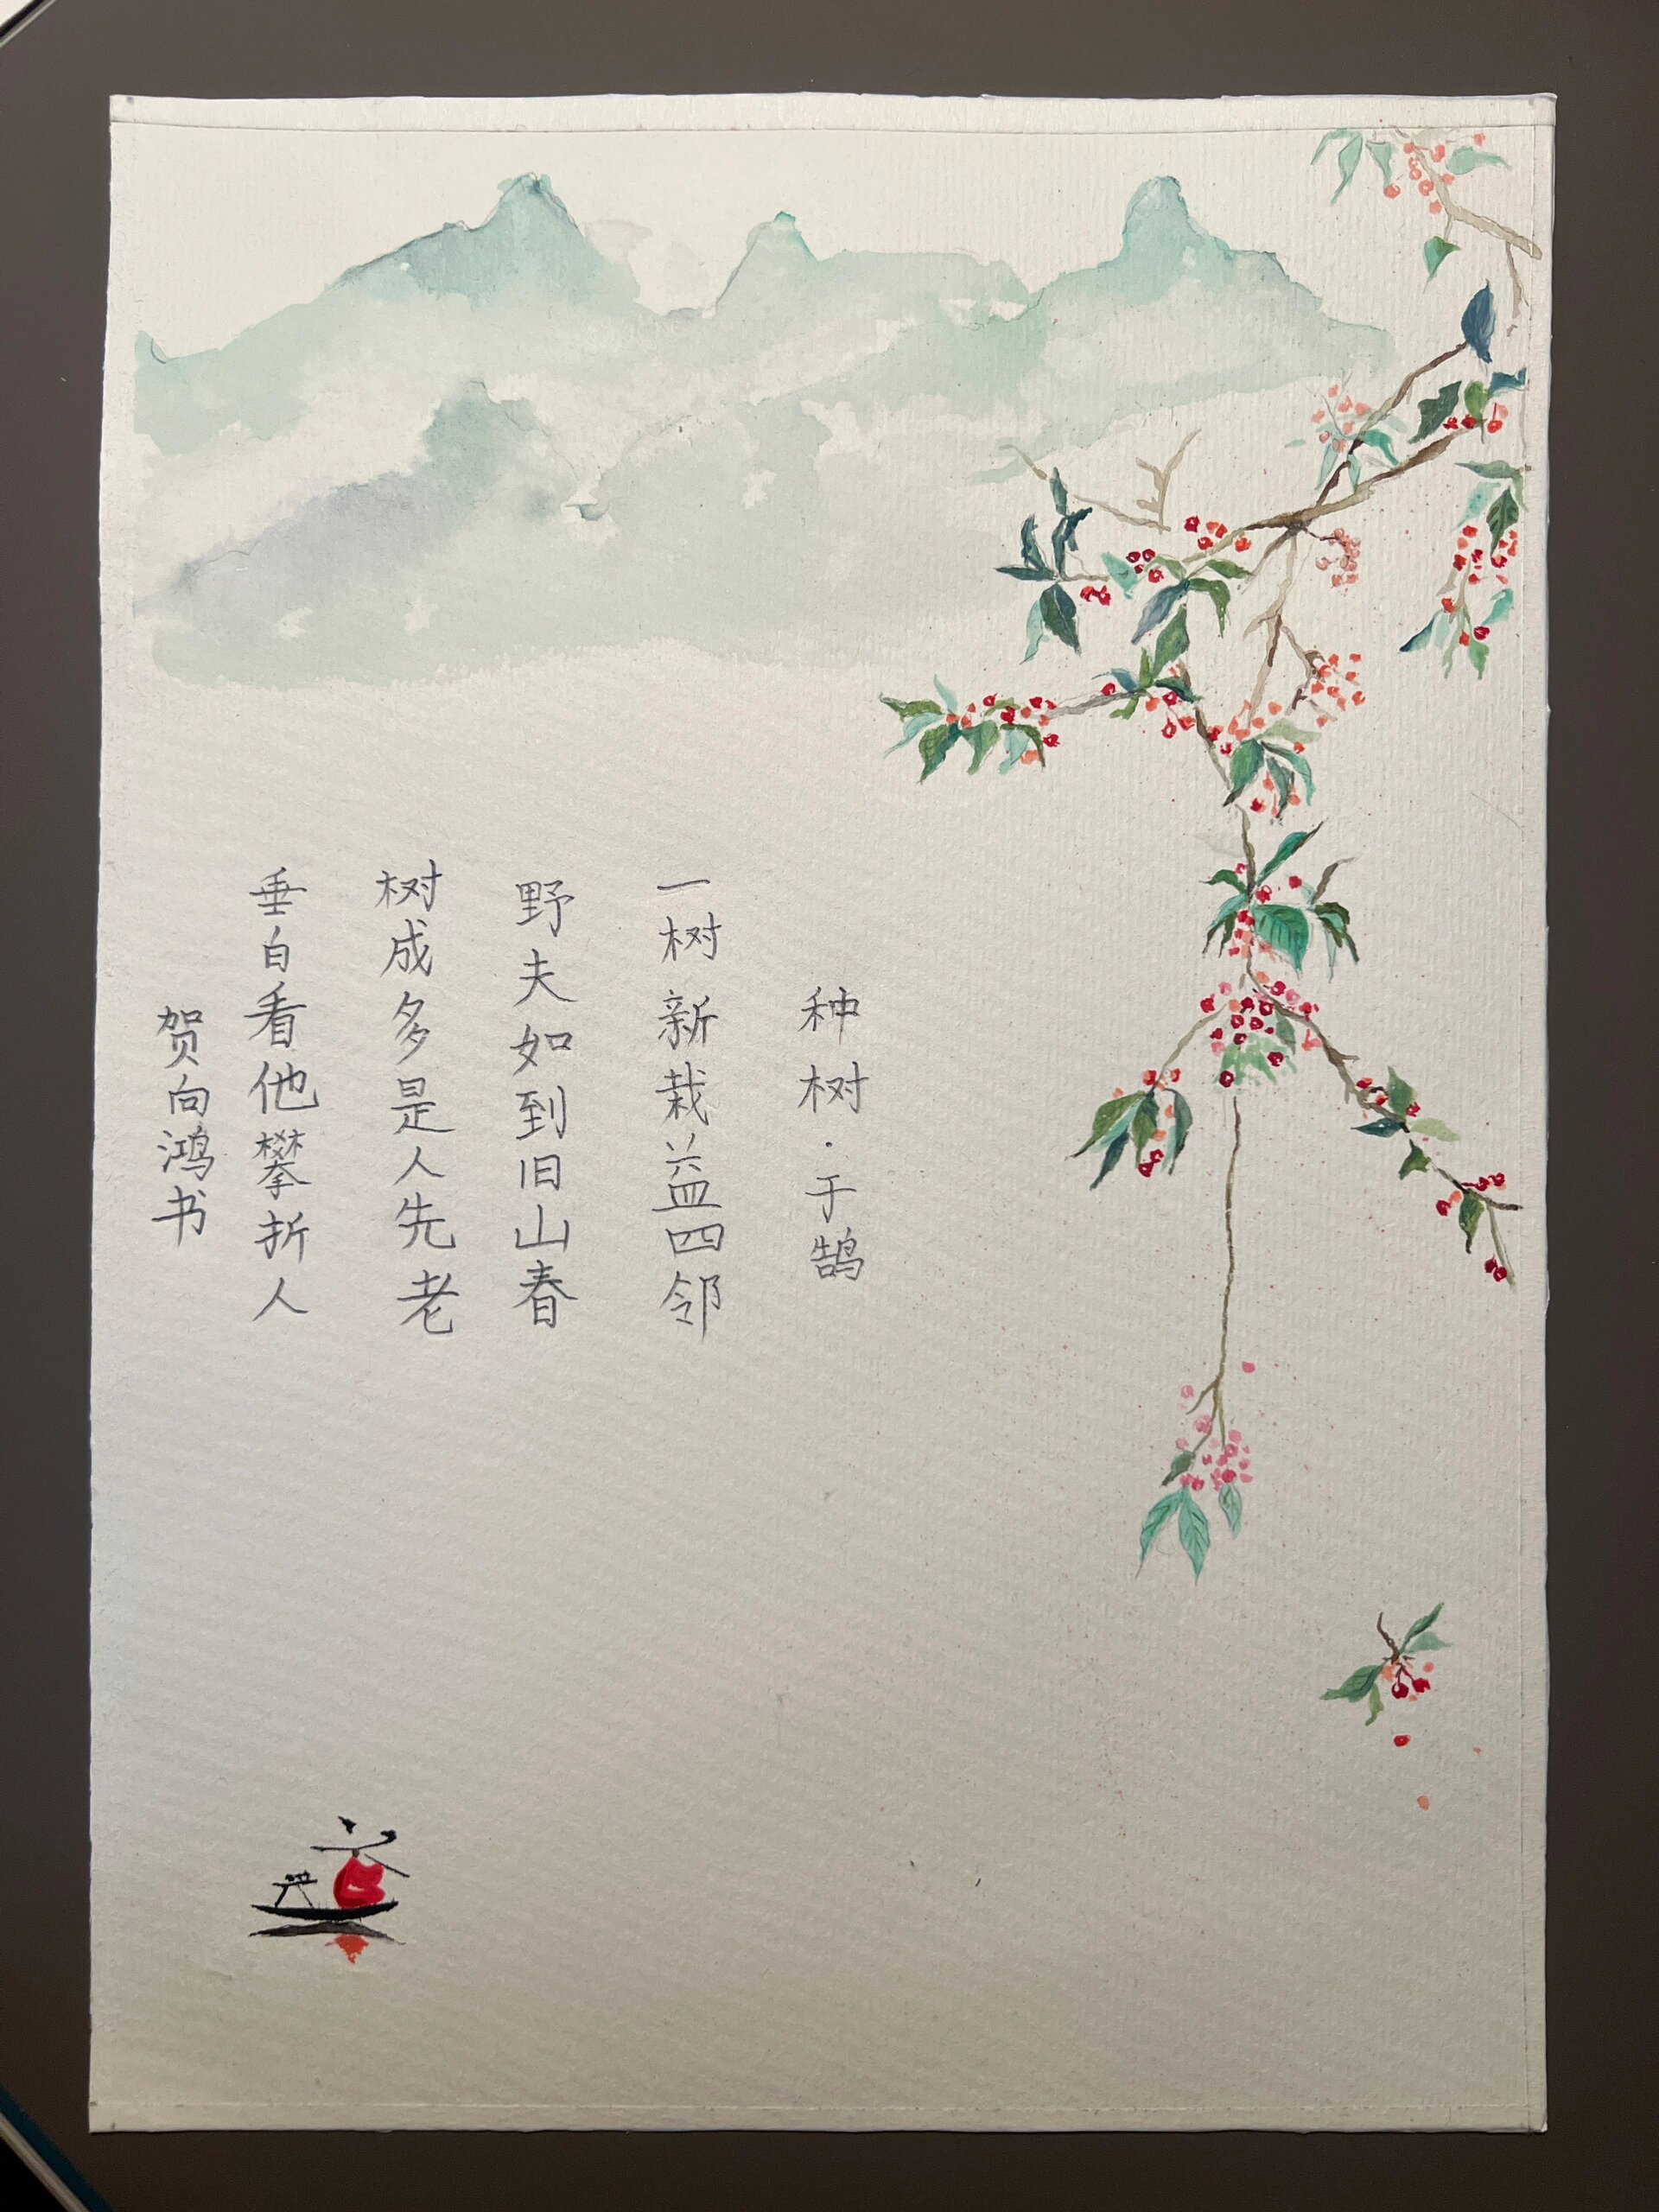 种树·于鹄
一树新栽益四邻
野夫如到旧山春
树成多是人先老
垂白看他攀折人
贺向鸿书